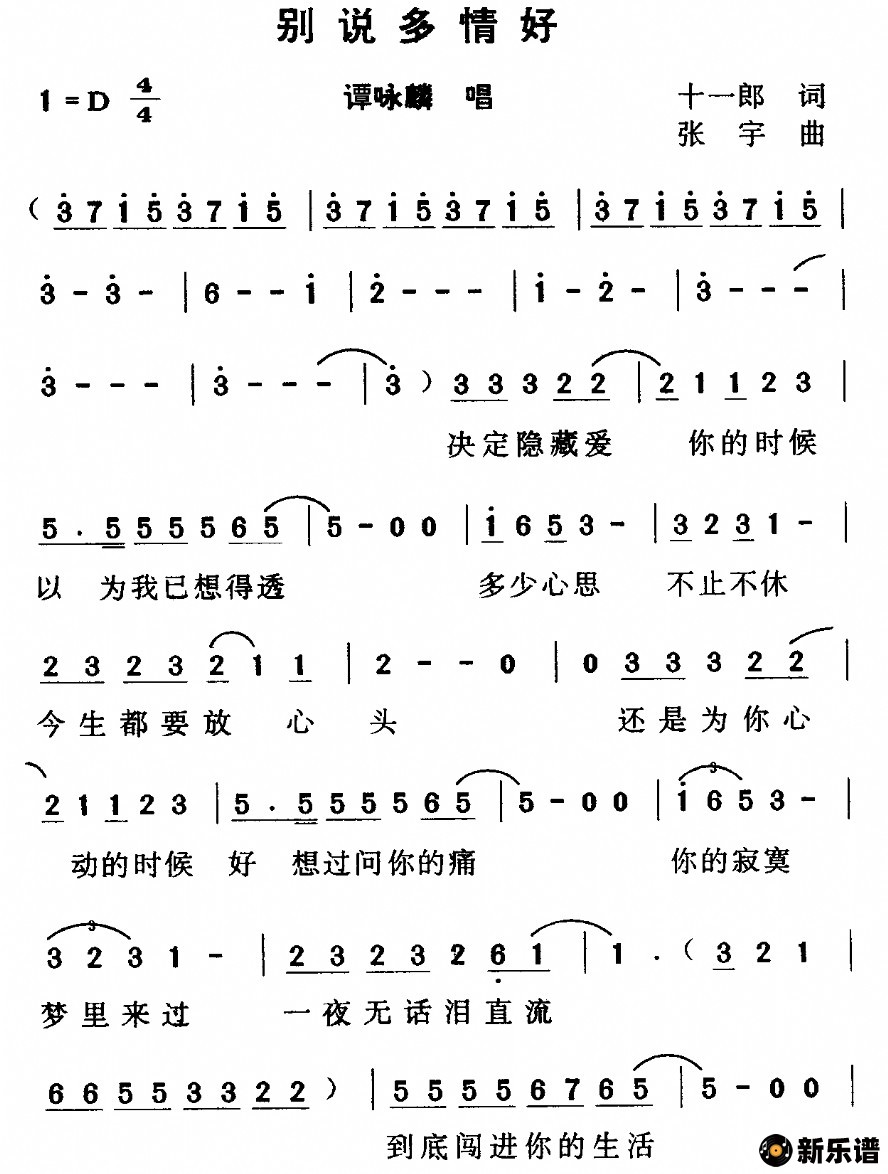 别说多情好
1=D 4/4 谭咏麟 唱 十一郎 词
张宇 曲
（3̇ 7 1̇ 5̇ 3̇ 7 1̇ 5̇ | 3̇ 7 1̇ 5̇ 3̇ 7 1̇ 5̇ | 3̇ 7 1̇ 5̇ 3̇ 7 1̇ 5̇ |
3̇ - 3̇ - | 6 - - 1̇ | 2̇ - - - | 1̇ - 2̇ - | 3̇ - - - |
3̇ - - - | 3̇ - - - | 3̇ ） 3 3 3 2 2 | 2 1 1 2 3 |
决定隐藏爱 你的时候
5 . 5 5 5 5 6 5 | 5 - 0 0 | 1̇ 6 5 3 - | 3 2 3 1 - |
以 为我已想得透 多少心思 不止不休
2 3 2 3 2 1 1 | 2 - - 0 | 0 3 3 3 2 2 |
今生都要放 心 头 还是为你心
2 1 1 2 3 | 5 . 5 5 5 5 6 5 | 5 - 0 0 | 3 1̇ 6 5 3 - |
动的时候 好 想过问你的痛 你的寂寞
3 3 2 3 1 - | 2 3 2 3 2 6̣ 1 | 1 . （ 3 2 1 |
梦里来过 一夜无话泪直流
6 6 5 5 3 3 2 2 ） | 5 5 5 5 6 7 6 5 | 5 - 0 0 |
到底闯进你的生活
新乐谱